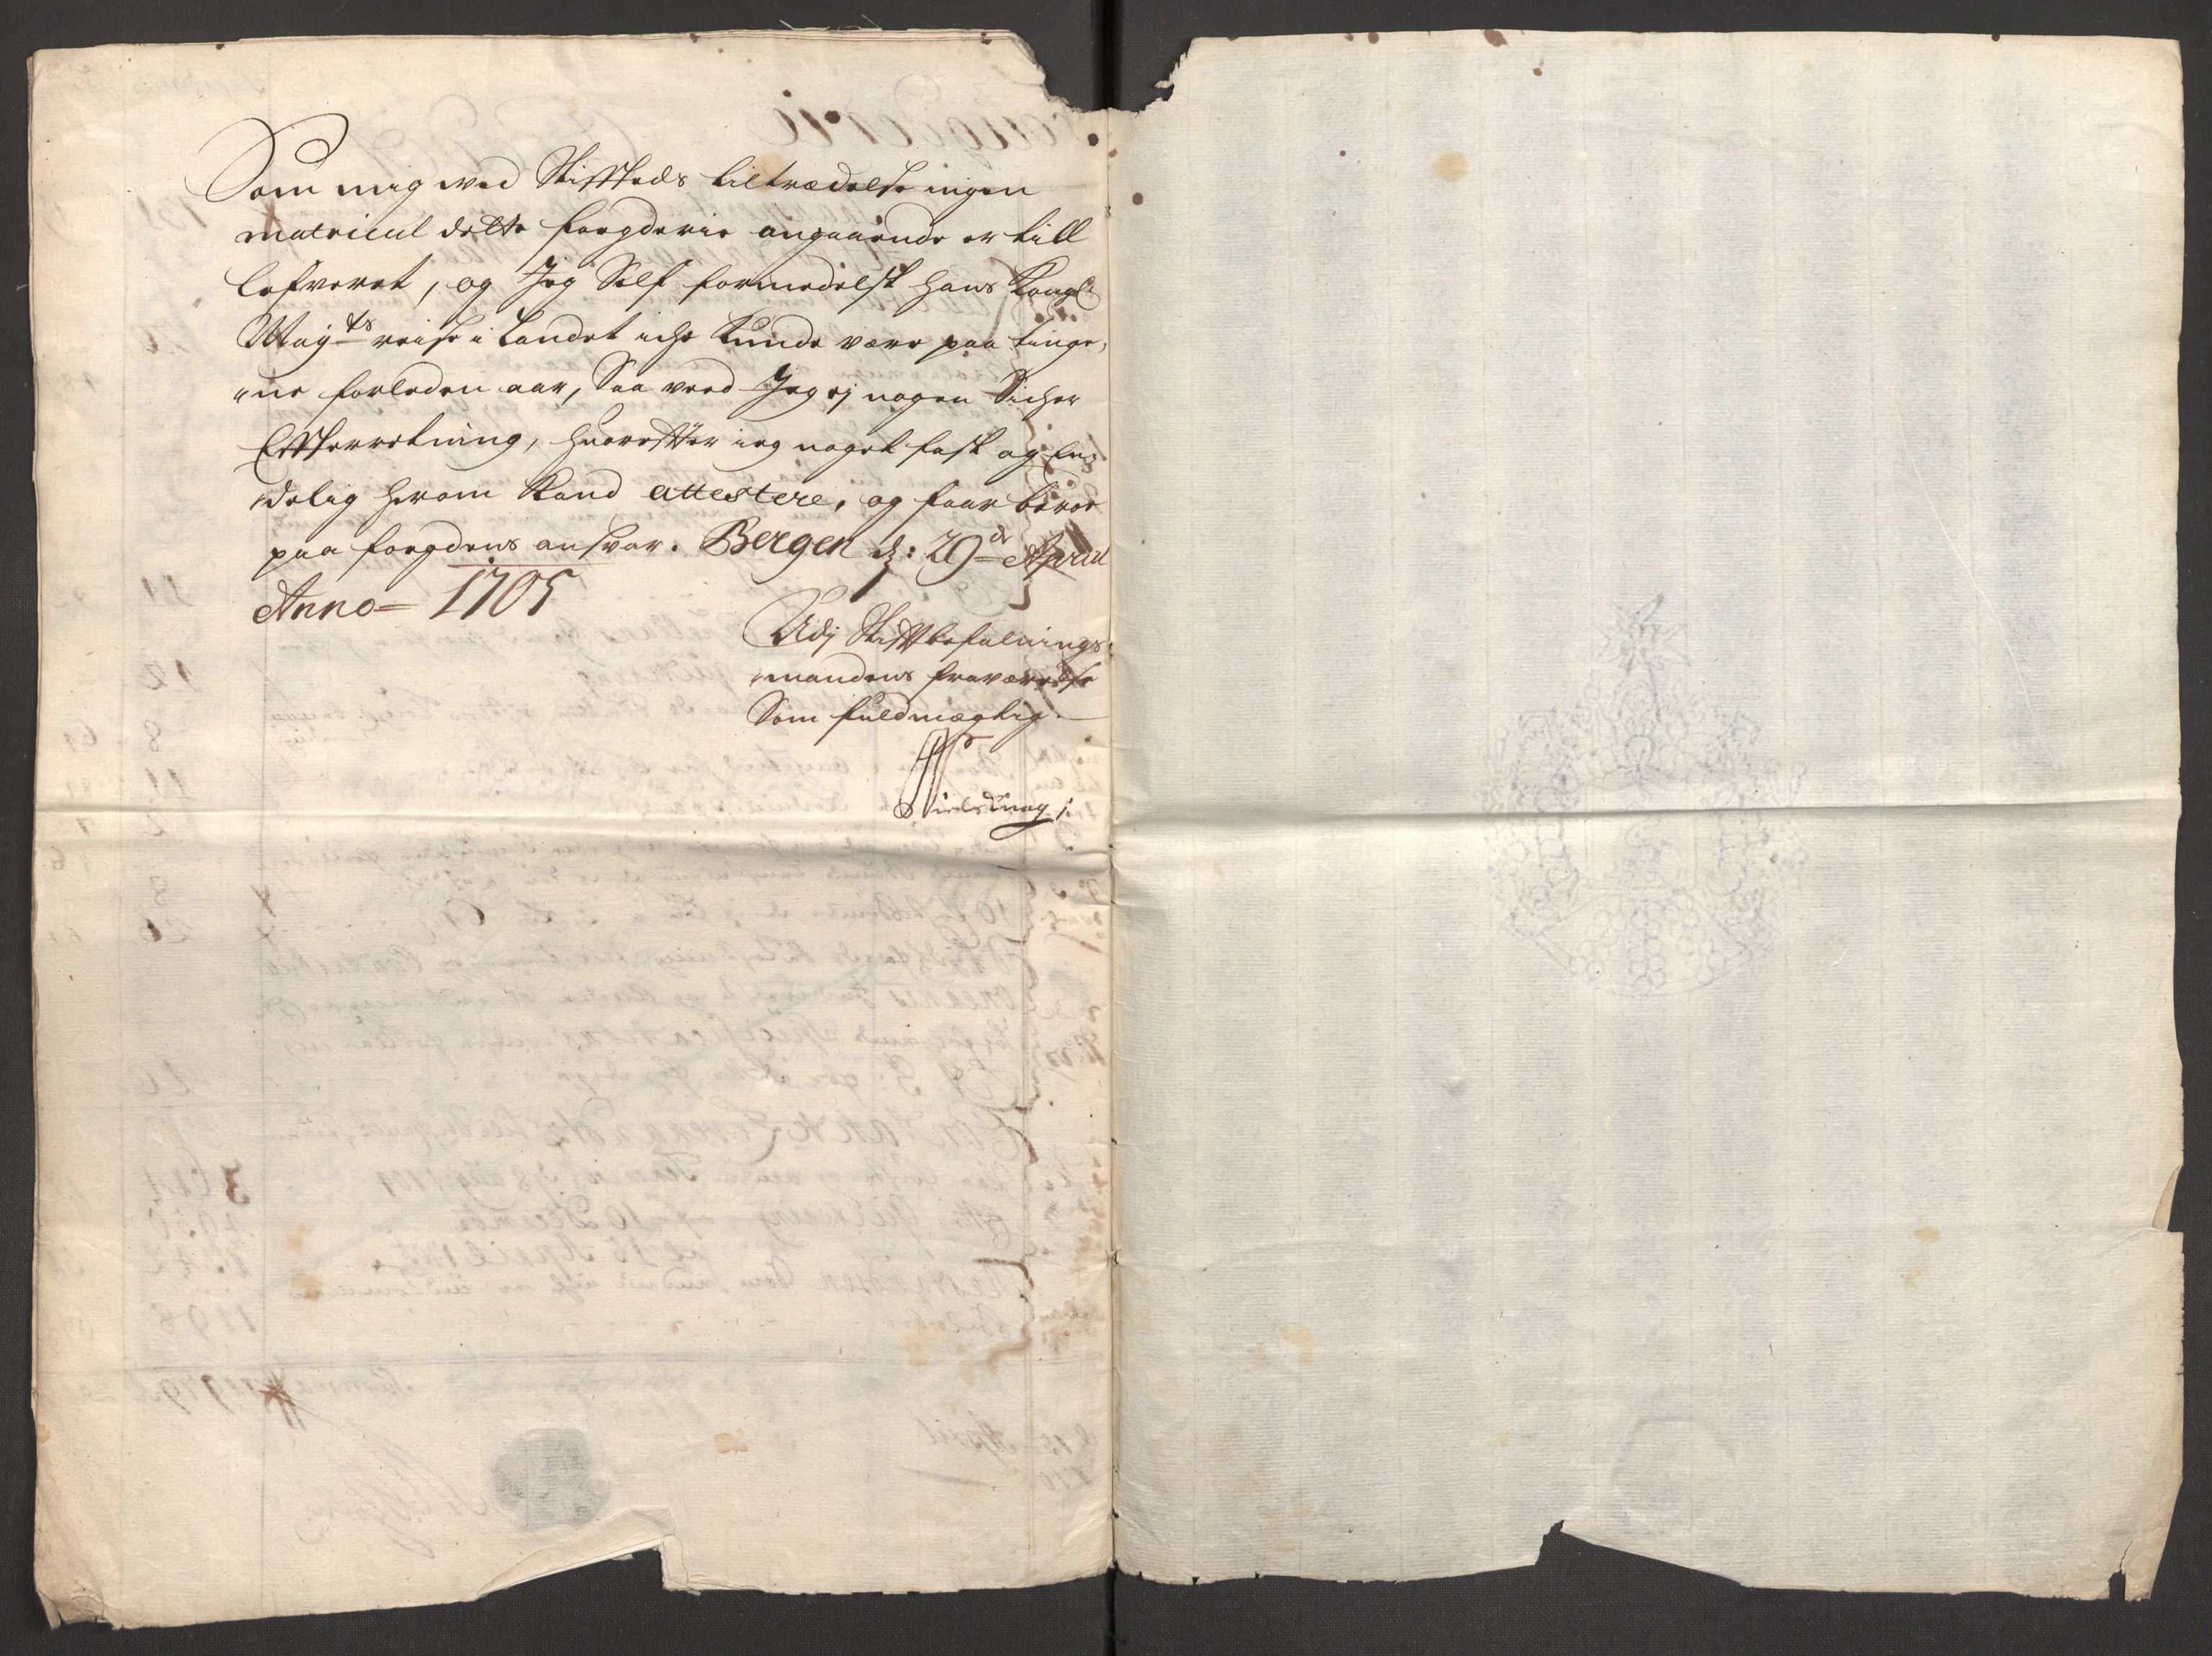 Som mig ved Stifftets tiltrædelse ingen
matricul dette fougderie angaaende er till
lefveret, og Jeg Self formedelst hans Kongl
Mayts reise i Landet iche kunde være paa tinge,
"ne forleden aar, Saa veed Jeg ej nogen Sicher
Efterretning, hvorefter ieg noget fast og En,
delig herom Kand attestere, og faar beroe
paa fogdens ansvar. Bergen d: 29de April
Anno 1705
Udj Stiftbefalnings
mandens fraværelse
Som fuldmægtig.
Niels Knag